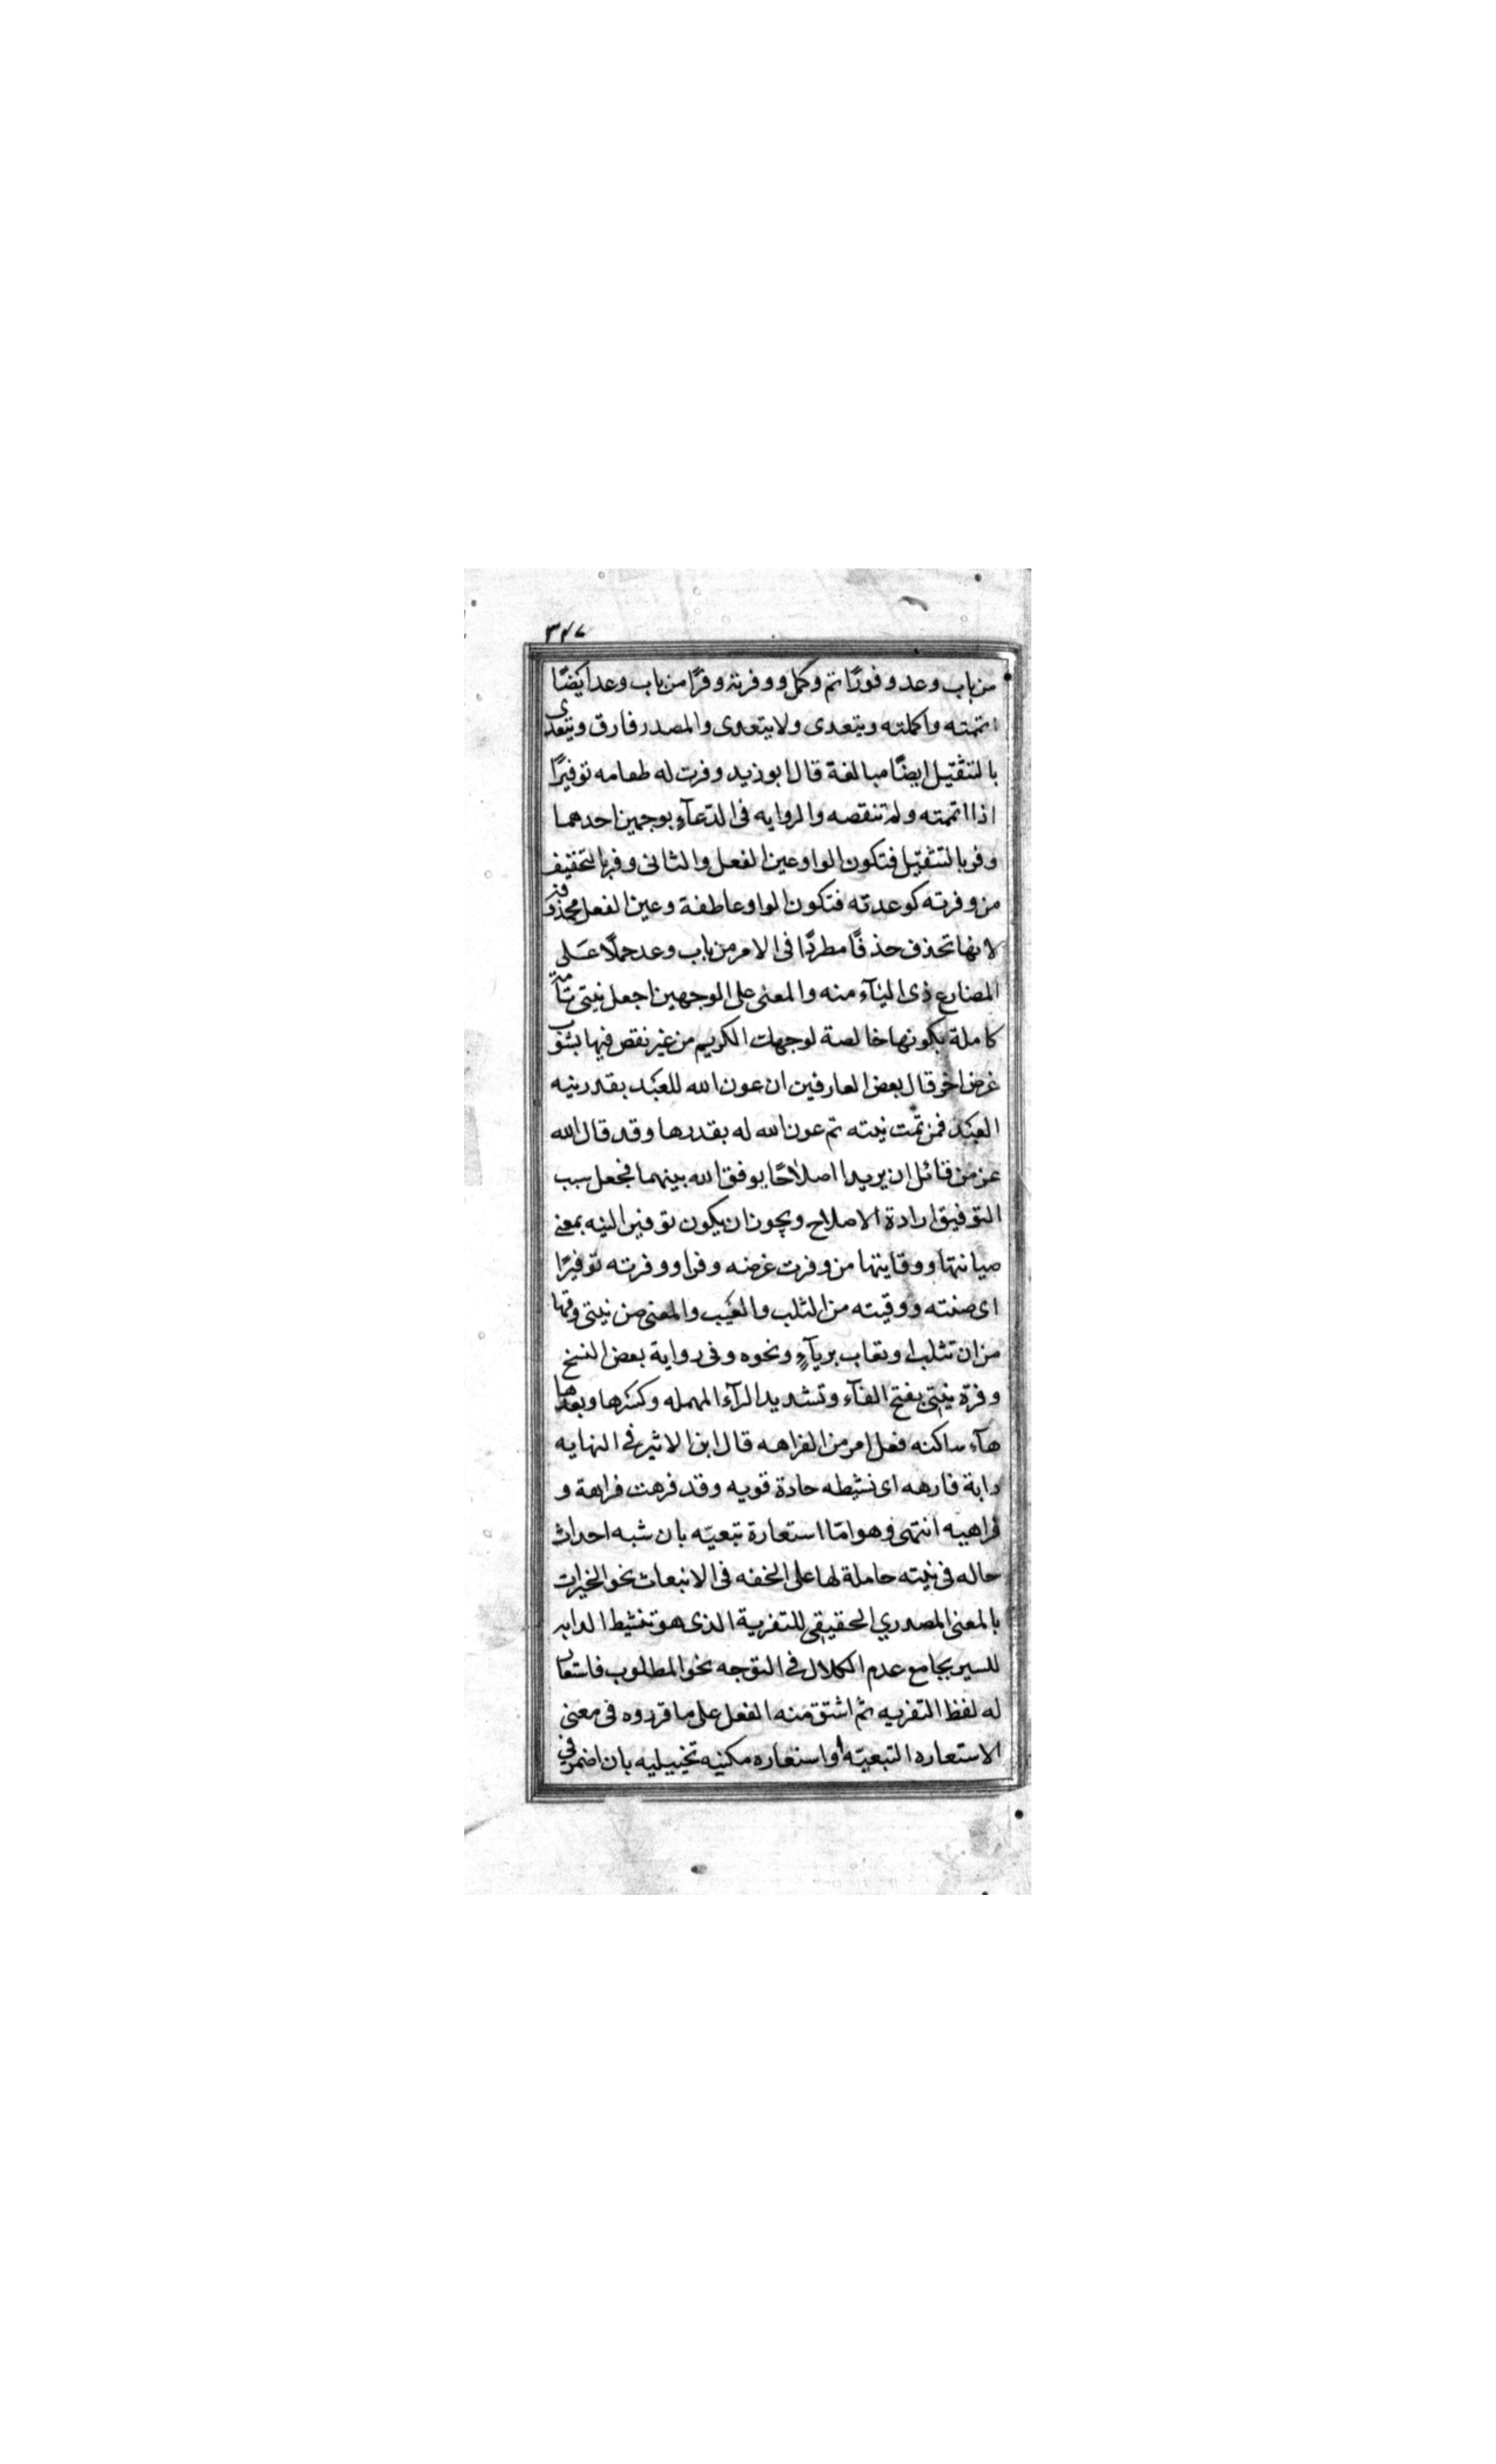 ٣٤٧
من باب وعد وفورًا تم وكمل ووفرته وفرًا من باب وعد ايضًا
اتممته واكملته ويتعدى ولا يتعدى والمصدر فارق ويتعدى
بالتثقيل ايضًا مبالغة قال ابو زيد وفرت له طعامه توفيرًا
اذا اتممته ولم تنقصه والروايه فى الدّعآء بوجهين احدهما
وفر بالتثقيل فتكون الواو عين الفعل والثانى وفر بالتخفيف
من وفرته كوعدته فتكون الواو عاطفة وعين الفعل محذوفة
لانها تحذف حذفًا مطردًا فى الامر من باب وعد حملًا على
المضارع ذى اليآء منه والمعنى على الوجهين اجعل نيتى تامّة
كاملة بكونها خالصة لوجهك الكريم من غير نقص فيها بشوب
غرض اخر قال بعض العارفين ان عون الله للعبد بقدر نيه
العبد فمن تمّت نيته تم عون الله له بقدرها وقد قال الله
عز من قائل ان يريدا اصلاحًا يوفق الله بينهما فجعل سبب
التوفيق ارادة الاصلاح ويجوز ان يكون توفير النيه بمعنى
صيانتها ووقايتها من وفرت عرضه وفرا ووفرته توفيرًا
اى صنته ووقيته من الثلب والعيب والمعنى صن نيتى وقها
من ان تثلب او تعاب بريآءٍ ونحوه وفى رواية بعض النسخ
وفرّه نيتى بفتح الفآء وتشديد الرآء المهمله وكسرها وبعدها
هآء ساكنه فعل امر من الفراهه قال ابن الاثير فى النهايه
دابة فارهه اى نشيطه حادة قويه وقد فرهت فراهة و
فراهيه انتهى وهو امّا استعارة تبعيّه بان شبه احداث
حاله فى نيته حاملة لها على الخفه فى الانبعاث نحو الخيرات
بالمعنى المصدري الحقيقى للتفرية الذى هو تنشيط الدابه
للسير بجامع عدم الكلال فى التوجه نحو المطلوب فاستعار
له لفظ التفريه ثم اشتق منه الفعل على ما قرروه فى معنى
الاستعاره التبعيّه او استعاره مكنيه تخييليه بان اضمر فى